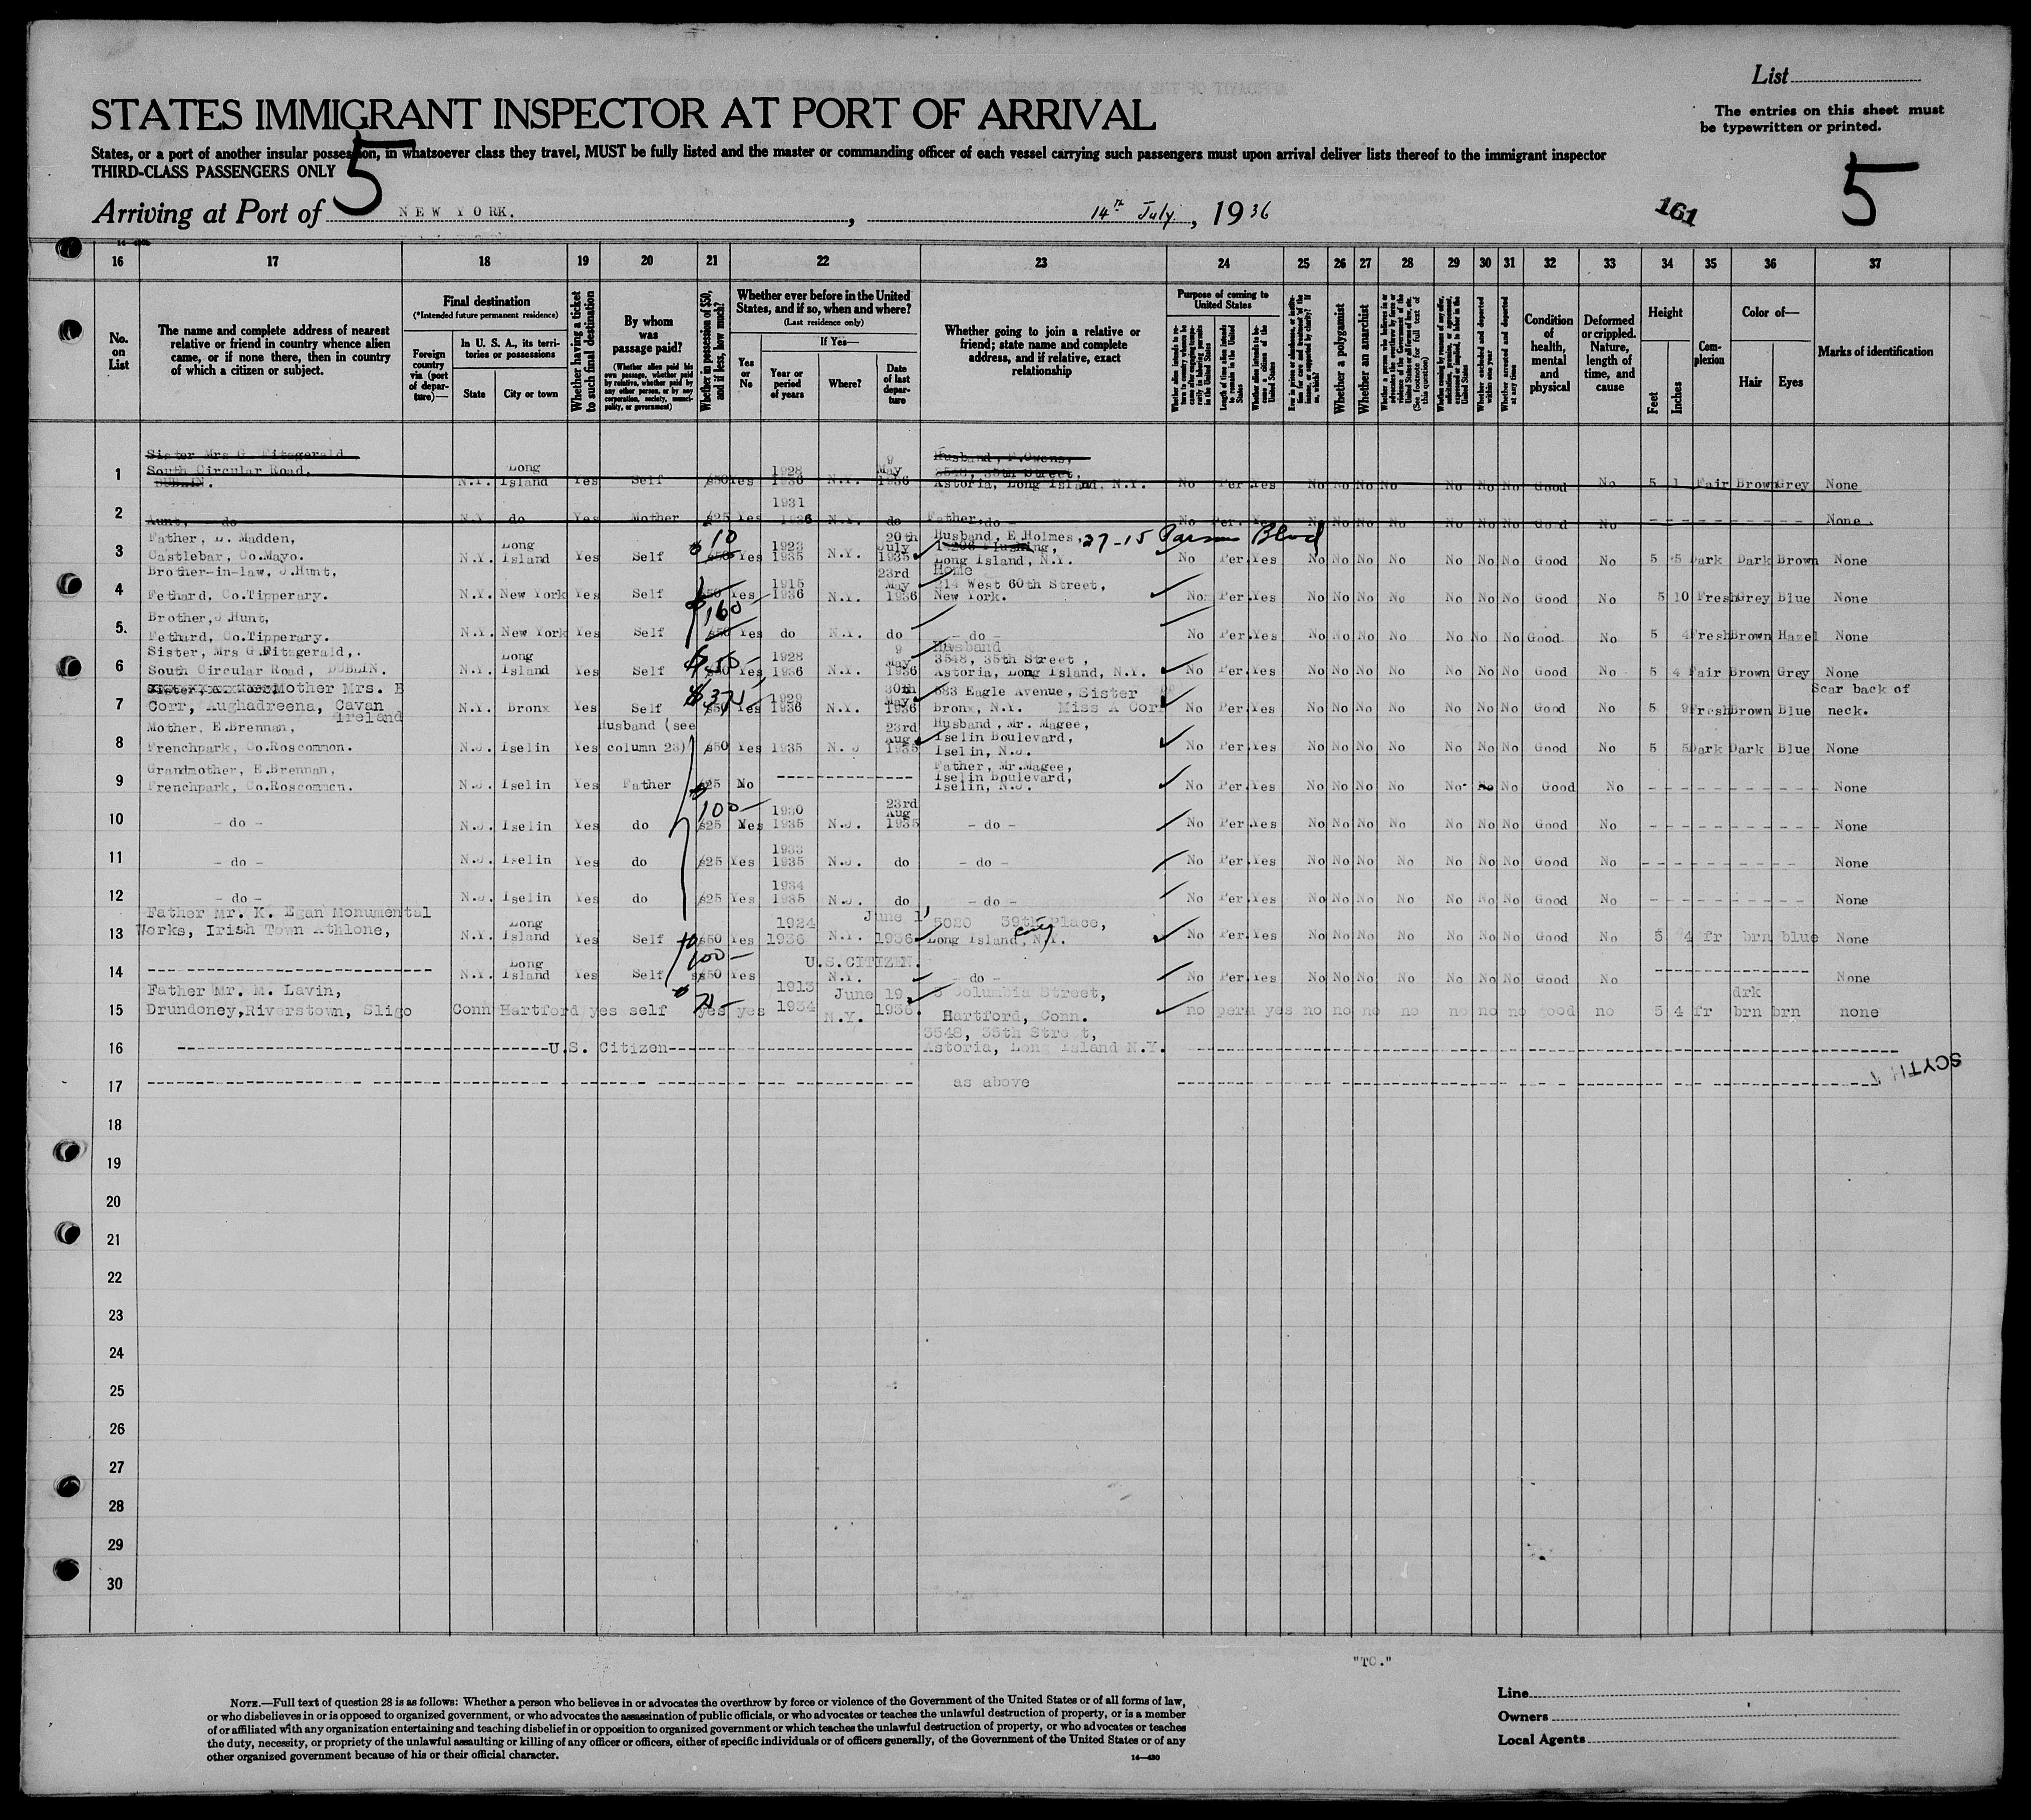 List
STATES IMMIGRANT INSPECTOR AT PORT OF ARRIVAL
The entries on this sheet must
be typewritten or printed.
States, or a port of another insular possession, in whatsoever class they travel, MUST be fully listed and the master or commanding officer of each vessel carrying such passengers must upon arrival deliver lists thereof to the immigrant inspector
THIRD-CLASS PASSENGERS ONLY
5
5
161
Arriving at Port of NEW YORK. , 14th July, 1936
16 17 18 19 20 21 22 23 24 25 26 27 28 29 30 31 32 33 34 35 36 37
No. on List
The name and complete address of nearest relative or friend in country whence alien came, or if none there, then in country of which a citizen or subject.
Final destination
(*Intended future permanent residence)
Foreign country via (port of departure)—
In U. S. A., its territories or possessions
State
City or town
Whether having a ticket to such final destination
By whom was passage paid?
(Whether alien paid his own passage, whether paid by relative, whether paid by any other person, or by any corporation, society, municipality, or government)
Whether in possession of $50, and if less, how much?
Whether ever before in the United States, and if so, when and where?
(Last residence only)
Yes or No
If Yes—
Year or period of years
Where?
Date of last departure
Whether going to join a relative or friend; state name and complete address, and if relative, exact relationship
Purpose of coming to United States
Length of time alien intends to remain in the United States
Whether alien intends to become a citizen of the United States
Whether a polygamist
Whether an anarchist
(See footnote for full text of this question)
Whether arrested and deported at any time
Condition of health, mental and physical
Deformed or crippled. Nature, length of time, and cause
Height
Feet
Inches
Complexion
Color of—
Hair
Eyes
Marks of identification
1 Sister Mrs G. Fitzgerald South Circular Road. DUBLIN. N.Y. Long Island Yes Self $50 Yes 1928 1936 N.Y. 9 May 1936 Husband, F.Owens, 3548, 35th Street, Astoria, Long Island, N.Y. No Per. Yes No No No No No No No Good No 5 1 Fair Brown Grey None
2 Aunt, - do N.Y. do Yes Mother $25 Yes 1931 1936 N.Y. do Father, do - No Per. Good No None.
3 Father, D. Madden, Castlebar, Co.Mayo. N.Y. Long Island Yes Self $50 $10 Yes 1923 1935 N.Y. 20th July 1935 Husband, E.Holmes, Flushing, 27-15 Parsons Blvd Long Island, N.Y. No Per. Yes No No No No No No No Good No 5 5 Dark Dark Brown None
4 Brother-in-law, J.Hunt, Fethard, Co.Tipperary. N.Y. New York Yes Self $50 Yes 1915 1936 N.Y. 23rd May 1936 Home 214 West 60th Street, New York. No Per. Yes No No No No No No No Good No 5 10 Fresh Grey Blue None
5. Brother, J Hunt, Fethard, Co.Tipperary. N.Y. New York Yes Self $50 160 Yes do N.Y. do - do - No Per. Yes No No No No No No No Good. No 5 4 Fresh Brown Hazel None
6 Sister, Mrs G.Fitzgerald,. South Circular Road, DUBLIN. N.Y. Long Island Yes Self $50 $50- Yes 1928 1936 N.Y. 9 May 1936 Husband 3548, 35th Street, Astoria, Long Island, N.Y. No Per. Yes No No No No No No No Good No 5 4 Fair Brown Grey None
7 Mother Mrs. B Corr, Aughadreena, Cavan Ireland N.Y. Bronx Yes Self $50 $375 Yes 1929 1936 N.Y. 30th May 1936 683 Eagle Avenue, Sister Bronx, N.Y. Miss A Corr No Per. Yes No No No No No No No Good No 5 9 Fresh Brown Blue Scar back of neck.
8 Mother, E.Brennan, Frenchpark, Co.Roscommon. N.J. Iselin Yes Husband (see column 23) $50 Yes 1935 N.J 23rd Aug. 1935 Husband, Mr. Magee, Iselin Boulevard, Iselin, N.J. No Per. Yes No No No No No No No Good No 5 5 Dark Dark Blue None
9 Grandmother, E.Brennan, Frenchpark, Co.Roscommon. N.J. Iselin Yes Father $25 No Father, Mr.Magee, Iselin Boulevard, Iselin, N.J. No Per. Yes No No No No No No No Good No None
10 - do - N.J. Iselin Yes do $25 $100- Yes 1930 1935 N.J. 23rd Aug 1935 - do - No Per. Yes No No No No No No No Good No None
11 - do - N.J. Iselin Yes do $25 Yes 1933 1935 N.J. do - do - No Per. Yes No No No No No No No Good No None
12 - do - N.J. Iselin Yes do $25 Yes 1934 1935 N.J. do - do - No Per. Yes No No No No No No No Good No None
13 Father Mr. K. Egan Monumental Works, Irish Town Athlone, N.Y. Long Island Yes Self $50 Yes 1924 1936 N.Y. June 1, 1936 5020 39th Place, Long Island City, N.Y. No Per. Yes No No No No No No No Good No 5 4 fr brn blue None
14 N.Y. Long Island Yes Self $50 $100- Yes U.S.CITIZEN. N.Y. - do - No Per. Yes No No No No No No No Good No None
15 Father Mr. M. Lavin, Drundoney,Riverstown, Sligo Conn Hartford yes self yes yes 1913 1934 N.Y. June 19, 1936. Columbia Street, Hartford, Conn. no perm yes no no no no no no no good no 5 4 fr drk brn brn none
16 U.S. Citizen 3548, 35th Street, Astoria, Long Island N.Y.
17 as above
SCYTHIA
18
19
20
21
22
23
24
25
26
27
28
29
30
"TC."
NOTE.—Full text of question 28 is as follows: Whether a person who believes in or advocates the overthrow by force or violence of the Government of the United States or of all forms of law,
or who disbelieves in or is opposed to organized government, or who advocates the assassination of public officials, or who advocates or teaches the unlawful destruction of property, or is a member
of or affiliated with any organization entertaining and teaching disbelief in or opposition to organized government or which teaches the unlawful destruction of property, or who advocates or teaches
the duty, necessity, or propriety of the unlawful assaulting or killing of any officer or officers, either of specific individuals or of officers generally, of the Government of the United States or of any
other organized government because of his or their official character.
14—430
Line
Owners
Local Agents